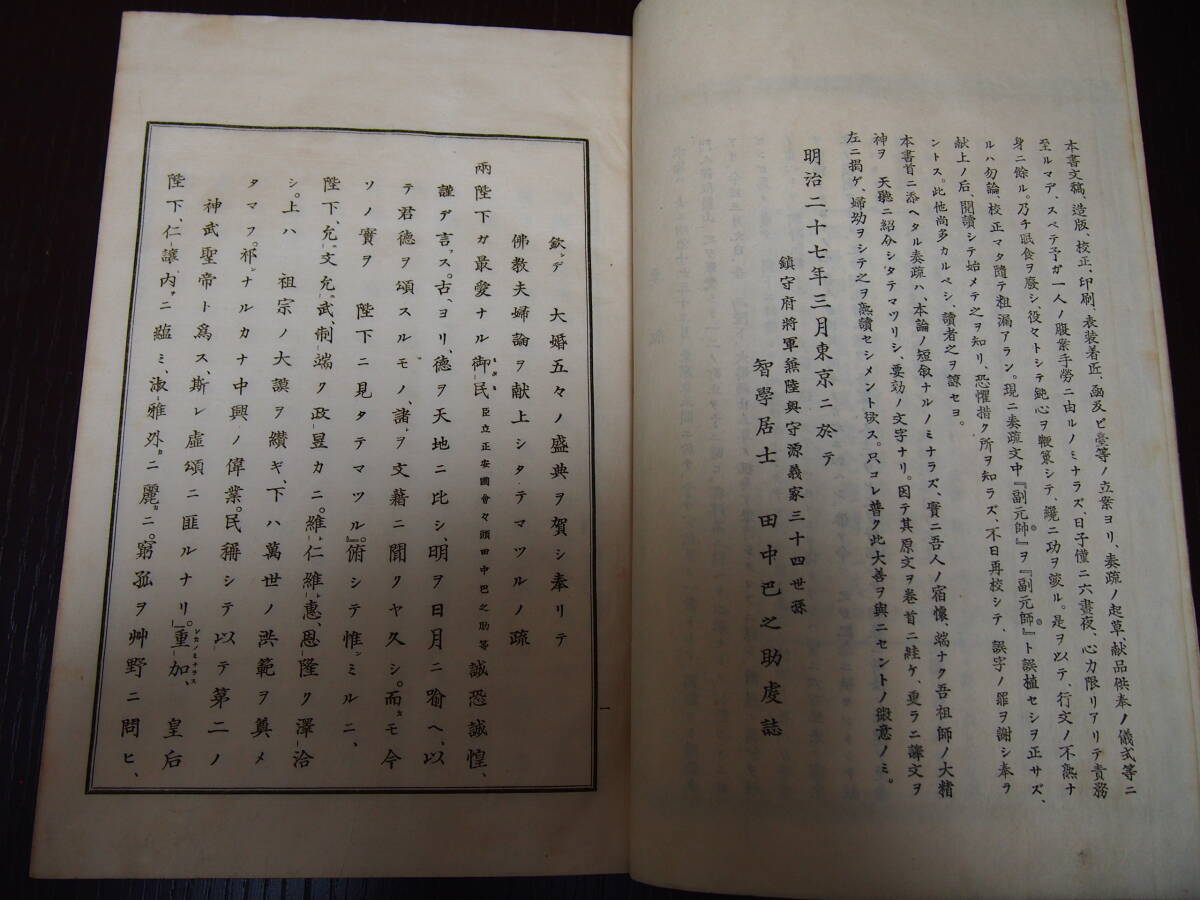 本書文稿、造版、校正、印刷、表装着匠、凾及ビ臺等ノ立案ヨリ、奏疏ノ起草、献品供奉ノ儀式等ニ
至ルマデ、スベテ予ガ一人ノ股業手勞ニ由ルノミナラズ、日子僅ニ六晝夜、心力限リアリテ責務
身ニ餘ル。乃チ眠食ヲ廢シ役々トシテ鈍心ヲ鞭策シテ、纔ニ功ヲ竣ル。是ヲ以テ、行文ノ不熟ナ
ルハ勿論、校正マタ隨テ粗漏アラン。現ニ奏疏文中『副元帥』ヲ『副元師』ト誤植セシヲ正サズ、
献上ノ后、閲讀シテ始メテ之ヲ知リ、恐懼措ク所ヲ知ラズ、不日再校シテ、誤字ノ罪ヲ謝シ奉ラ
ントス。此他尚多カルベシ、讀者之ヲ諒セヨ。
本書首ニ添ヘタル奏疏ハ、本論ノ短叙ナルノミナラズ、實ニ吾人ノ宿懷、端ナク吾祖師ノ大精
神ヲ　天聽ニ紹介シタテマツリシ、要効ノ文字ナリ。因テ其原文ヲ卷首ニ註ケ、更ラニ譯文ヲ
左ニ揭ゲ、婦幼ヲシテ之ヲ熟讀セシメント欲ス。只コレ普ク此大善ヲ與ニセントノ微意ノミ。
明治二十七年三月東京ニ於テ
鎭守府將軍兼陸奥守源義家三十四世孫
智學居士　田中巴之助虔誌
欽ンデ　大婚五々ノ盛典ヲ賀シ奉リテ
佛敎夫婦論ヲ献上シタテマツルノ疏
兩陛下ガ最愛ナル御民臣立正安國會々頭田中巴之助等誠恐誠惶、
謹デ言ス。古ヨリ、德ヲ天地ニ比シ、明ヲ日月ニ喩ヘ、以
テ君德ヲ頌スルモノ、諸ヲ文藉ニ聞クヤ久シ。而モ今
ソノ實ヲ　陛下ニ見タテマツル。』俯シテ惟ミルニ、
陛下、允文允武、制端ク政昱カニ。維仁維惠、恩隆ク澤洽
シ。上ハ　祖宗ノ大謨ヲ纉ギ、下ハ萬世ノ洪範ヲ奠メ
タマフ。祁ナルカナ中興ノ偉業。民稱シテ以テ第二ノ
神武聖帝ト爲ス、斯レ虛頌ニ匪ルナリ。』重加　皇后
陛下、仁讓内ニ蘊ミ、淑雅外ニ麗ニ。窮孤ヲ艸野ニ問ヒ、
一